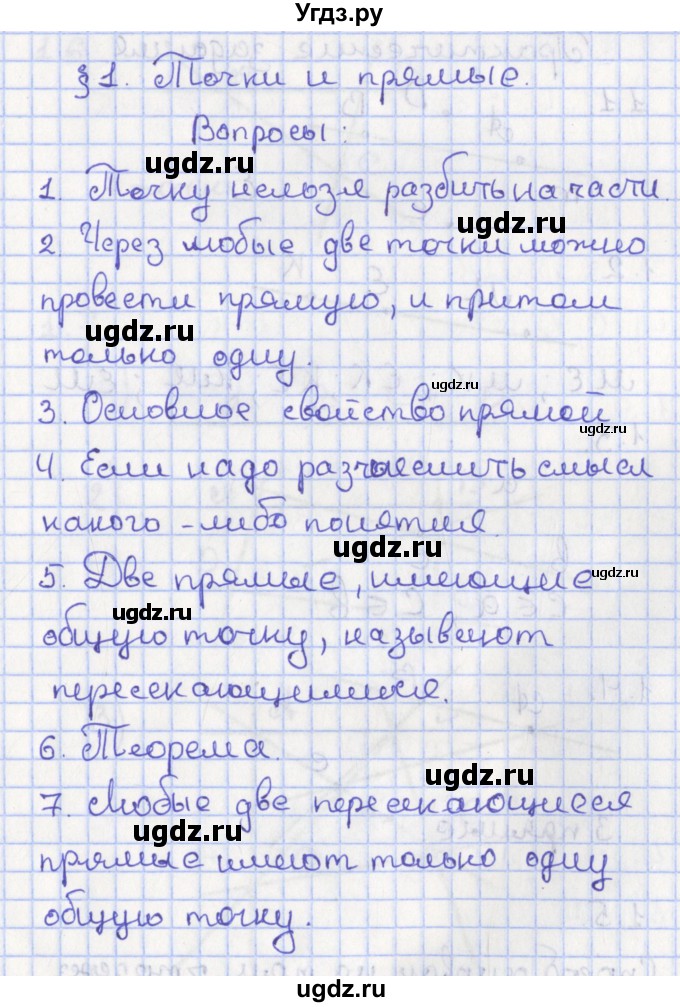 Угдз.ру
§1. Точки и прямые.
Вопросы:
ugdz.ru
1. Точку нельзя разбить на части.
ugdz.ru
2. Через любые две точки можно
провести прямую, и притом
ugdz.ru
только одну.
ugdz.ru
3. Основное свойство прямой
4. Если надо разъяснить смысл
какого-либо понятия.
ugdz.ru
5. Две прямые, имеющие
ugdz.ru
ugdz.ru
общую точку, называют
пересекающимися.
6. Теорема.
ugdz.ru
7. Любые две пересекающиеся
ugdz.ru
прямые имеют только одну
ugdz.ru
общую точку.
ugdz.ru